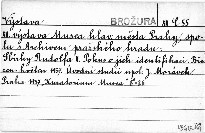 Výstava
BROŽURA III E 55
III. výstava Musea hlav. města Prahy spo-
lu s Archivem pražského hradu.
Sbírky Rudolfa II. Pokus o jich identifikaci. Břez
Úvodní studii naps. J. Morávek
Praha 1937. Kuratorium Musea